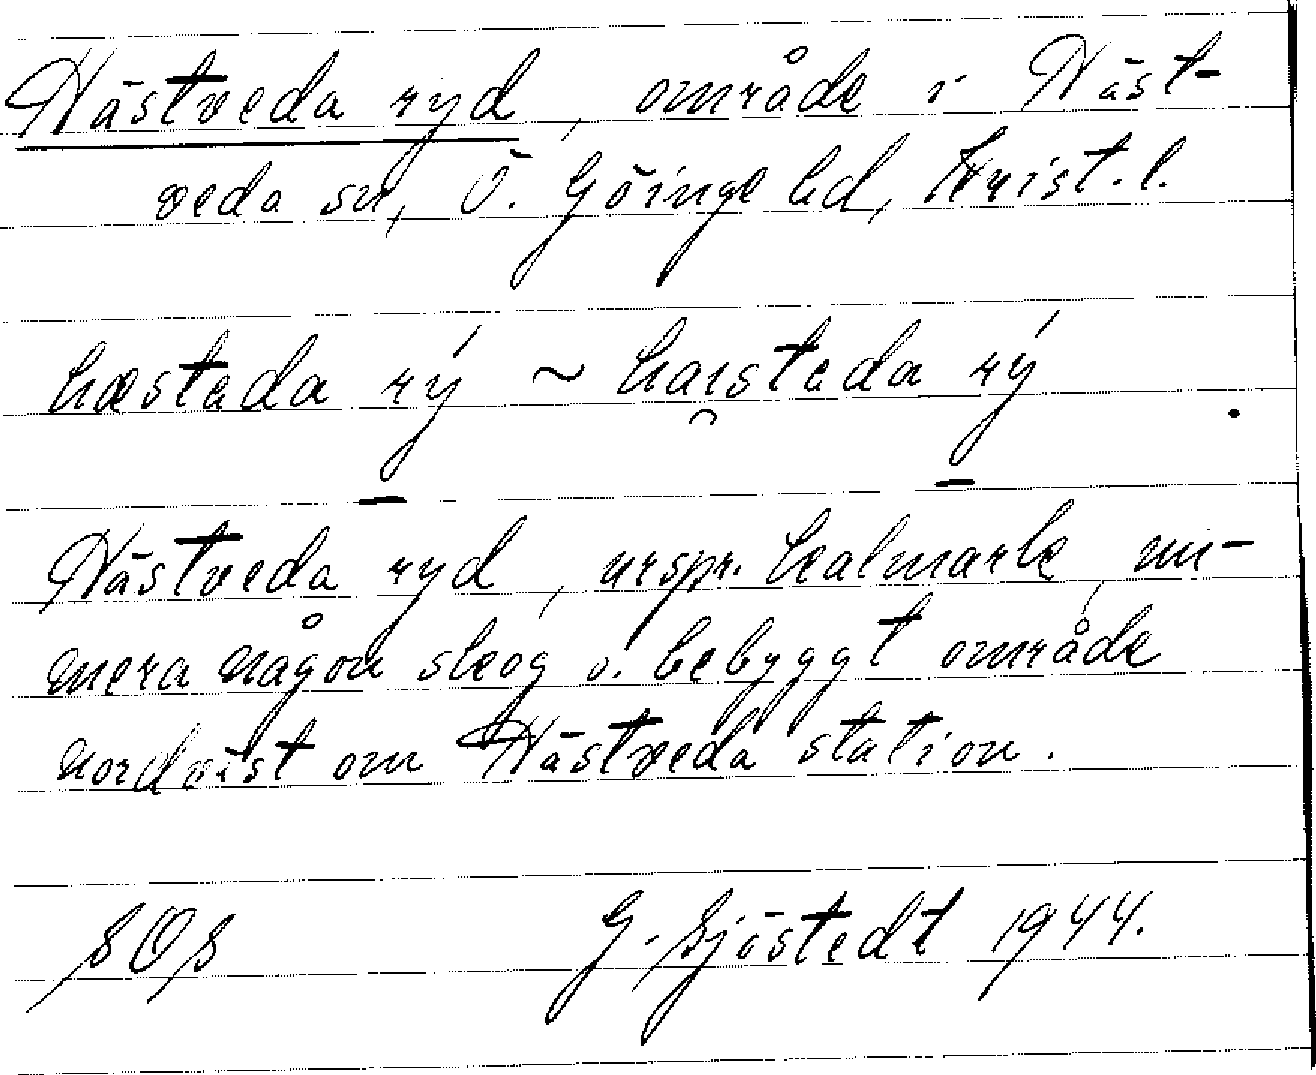 Hästveda ryd, område i Häst-
veda sn, Ö. Göinge hd, Krist. l.
hæsteda rý ~ haisteda rý
Hästveda ryd, urspr. kalmark, nu-
mera någon skog o. bebyggt område
nordväst om Hästveda station.
SOS G. Sjöstedt 1944.